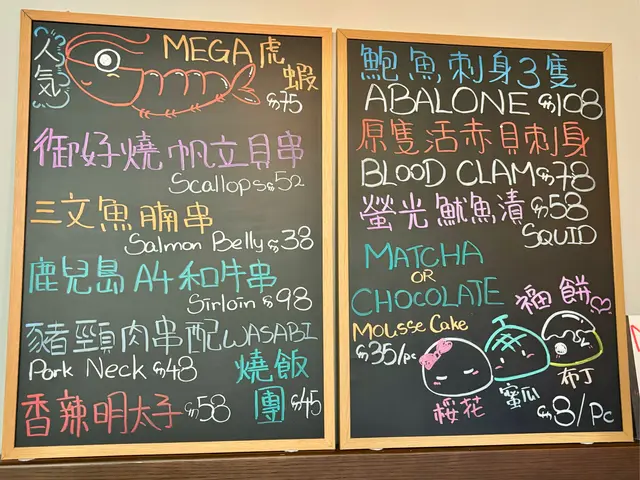 人氣
MEGA虎蝦
$75
御好燒帆立貝串
Scallops $52
三文魚腩串
Salmon Belly $38
鹿兒島A4和牛串
Sirloin $98
豬頸肉串配WASABI
Pork Neck $48
燒飯團 $45
香辣明太子 $58
鮑魚刺身3隻
ABALONE $108
原隻活赤貝刺身
BLOOD CLAM $78
螢光魷魚漬 $58
SQUID
MATCHA
OR
CHOCOLATE
Mousse Cake
$35/pc
福餅
桜花
蜜瓜
布丁
$8/Pc